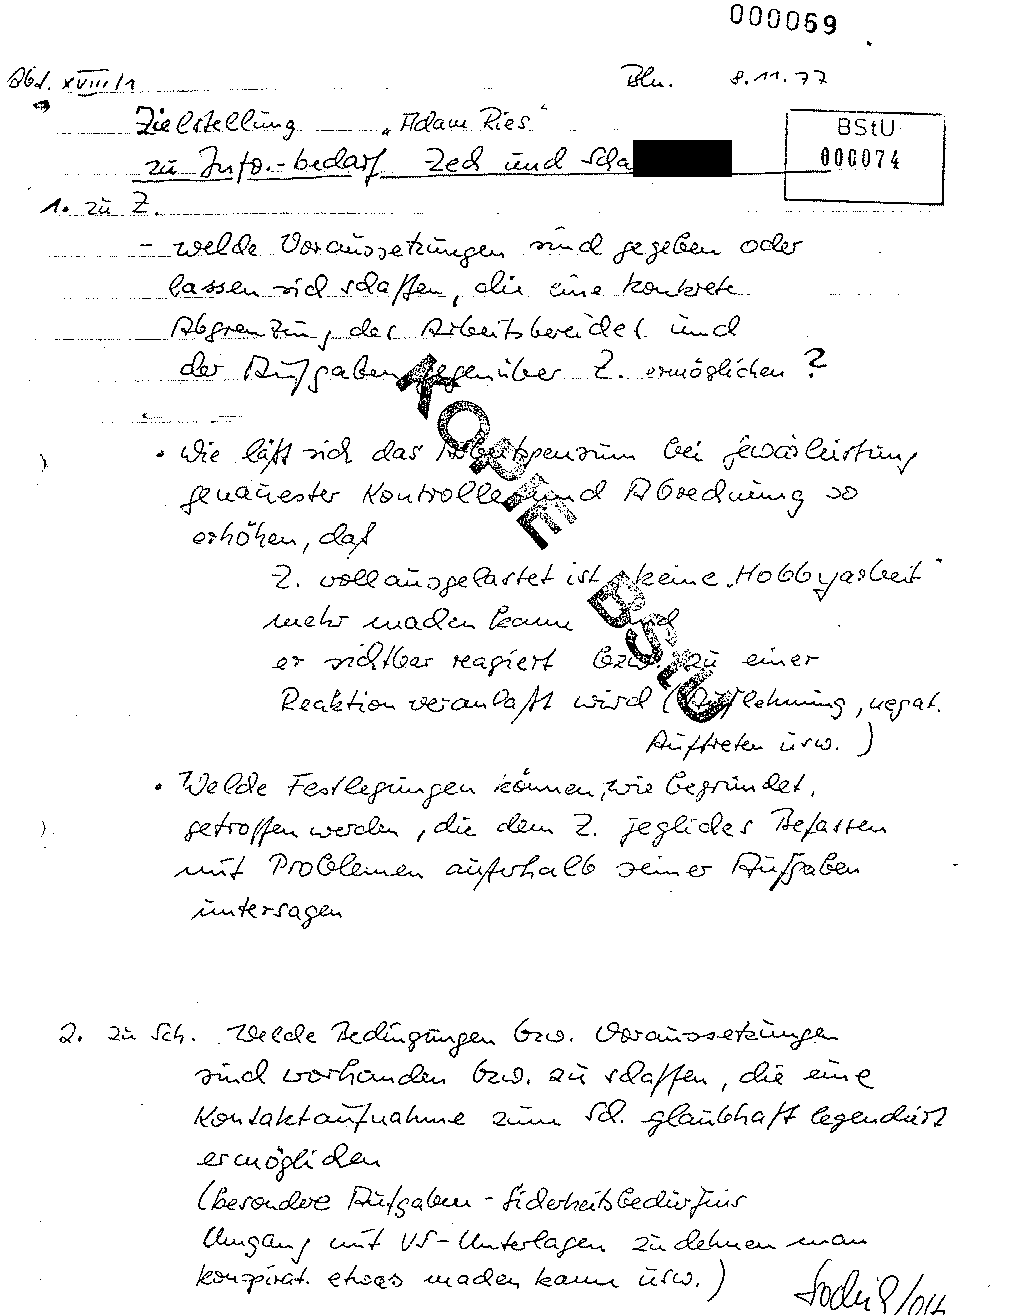 000059
Abt. XVIII/1 Bln. 8.11.77
Zielstellung „Adam Ries"
zu Info.-bedarf Zech und Scha
BStU
000074
1. zu Z.
- welche Voraussetzungen sind gegeben oder
lassen sich schaffen, die eine konkrete
Abgrenzung des Arbeitsbereiches und
der Aufgaben gegenüber Z. ermöglichen?
• Wie läßt sich das Arbeitspensum bei gewährleistung
genauester Kontrolle und Abrechnung so
erhöhen, daß
Z. voll ausgelastet ist, keine „Hobbyarbeit"
mehr machen kann und
er sichtbar reagiert bzw. zu einer
Reaktion veranlaßt wird (Auflehnung, negat.
Auftreten usw.)
• Welche Festlegungen können, wie begründet,
getroffen werden, die dem Z. jegliches Befassen
mit Problemen außerhalb seiner Aufgaben
untersagen
KOPIE BStU
2. zu Sch. Welche Bedingungen bzw. Voraussetzungen
sind vorhanden bzw. zu schaffen, die eine
Kontaktaufnahme zum Sch. glaubhaft legendiert
ermöglichen
(besondere Aufgaben - Sicherheitsbedürfnis
Umgang mit VS-Unterlagen zu denen man
konspirat. etwas machen kann usw.)